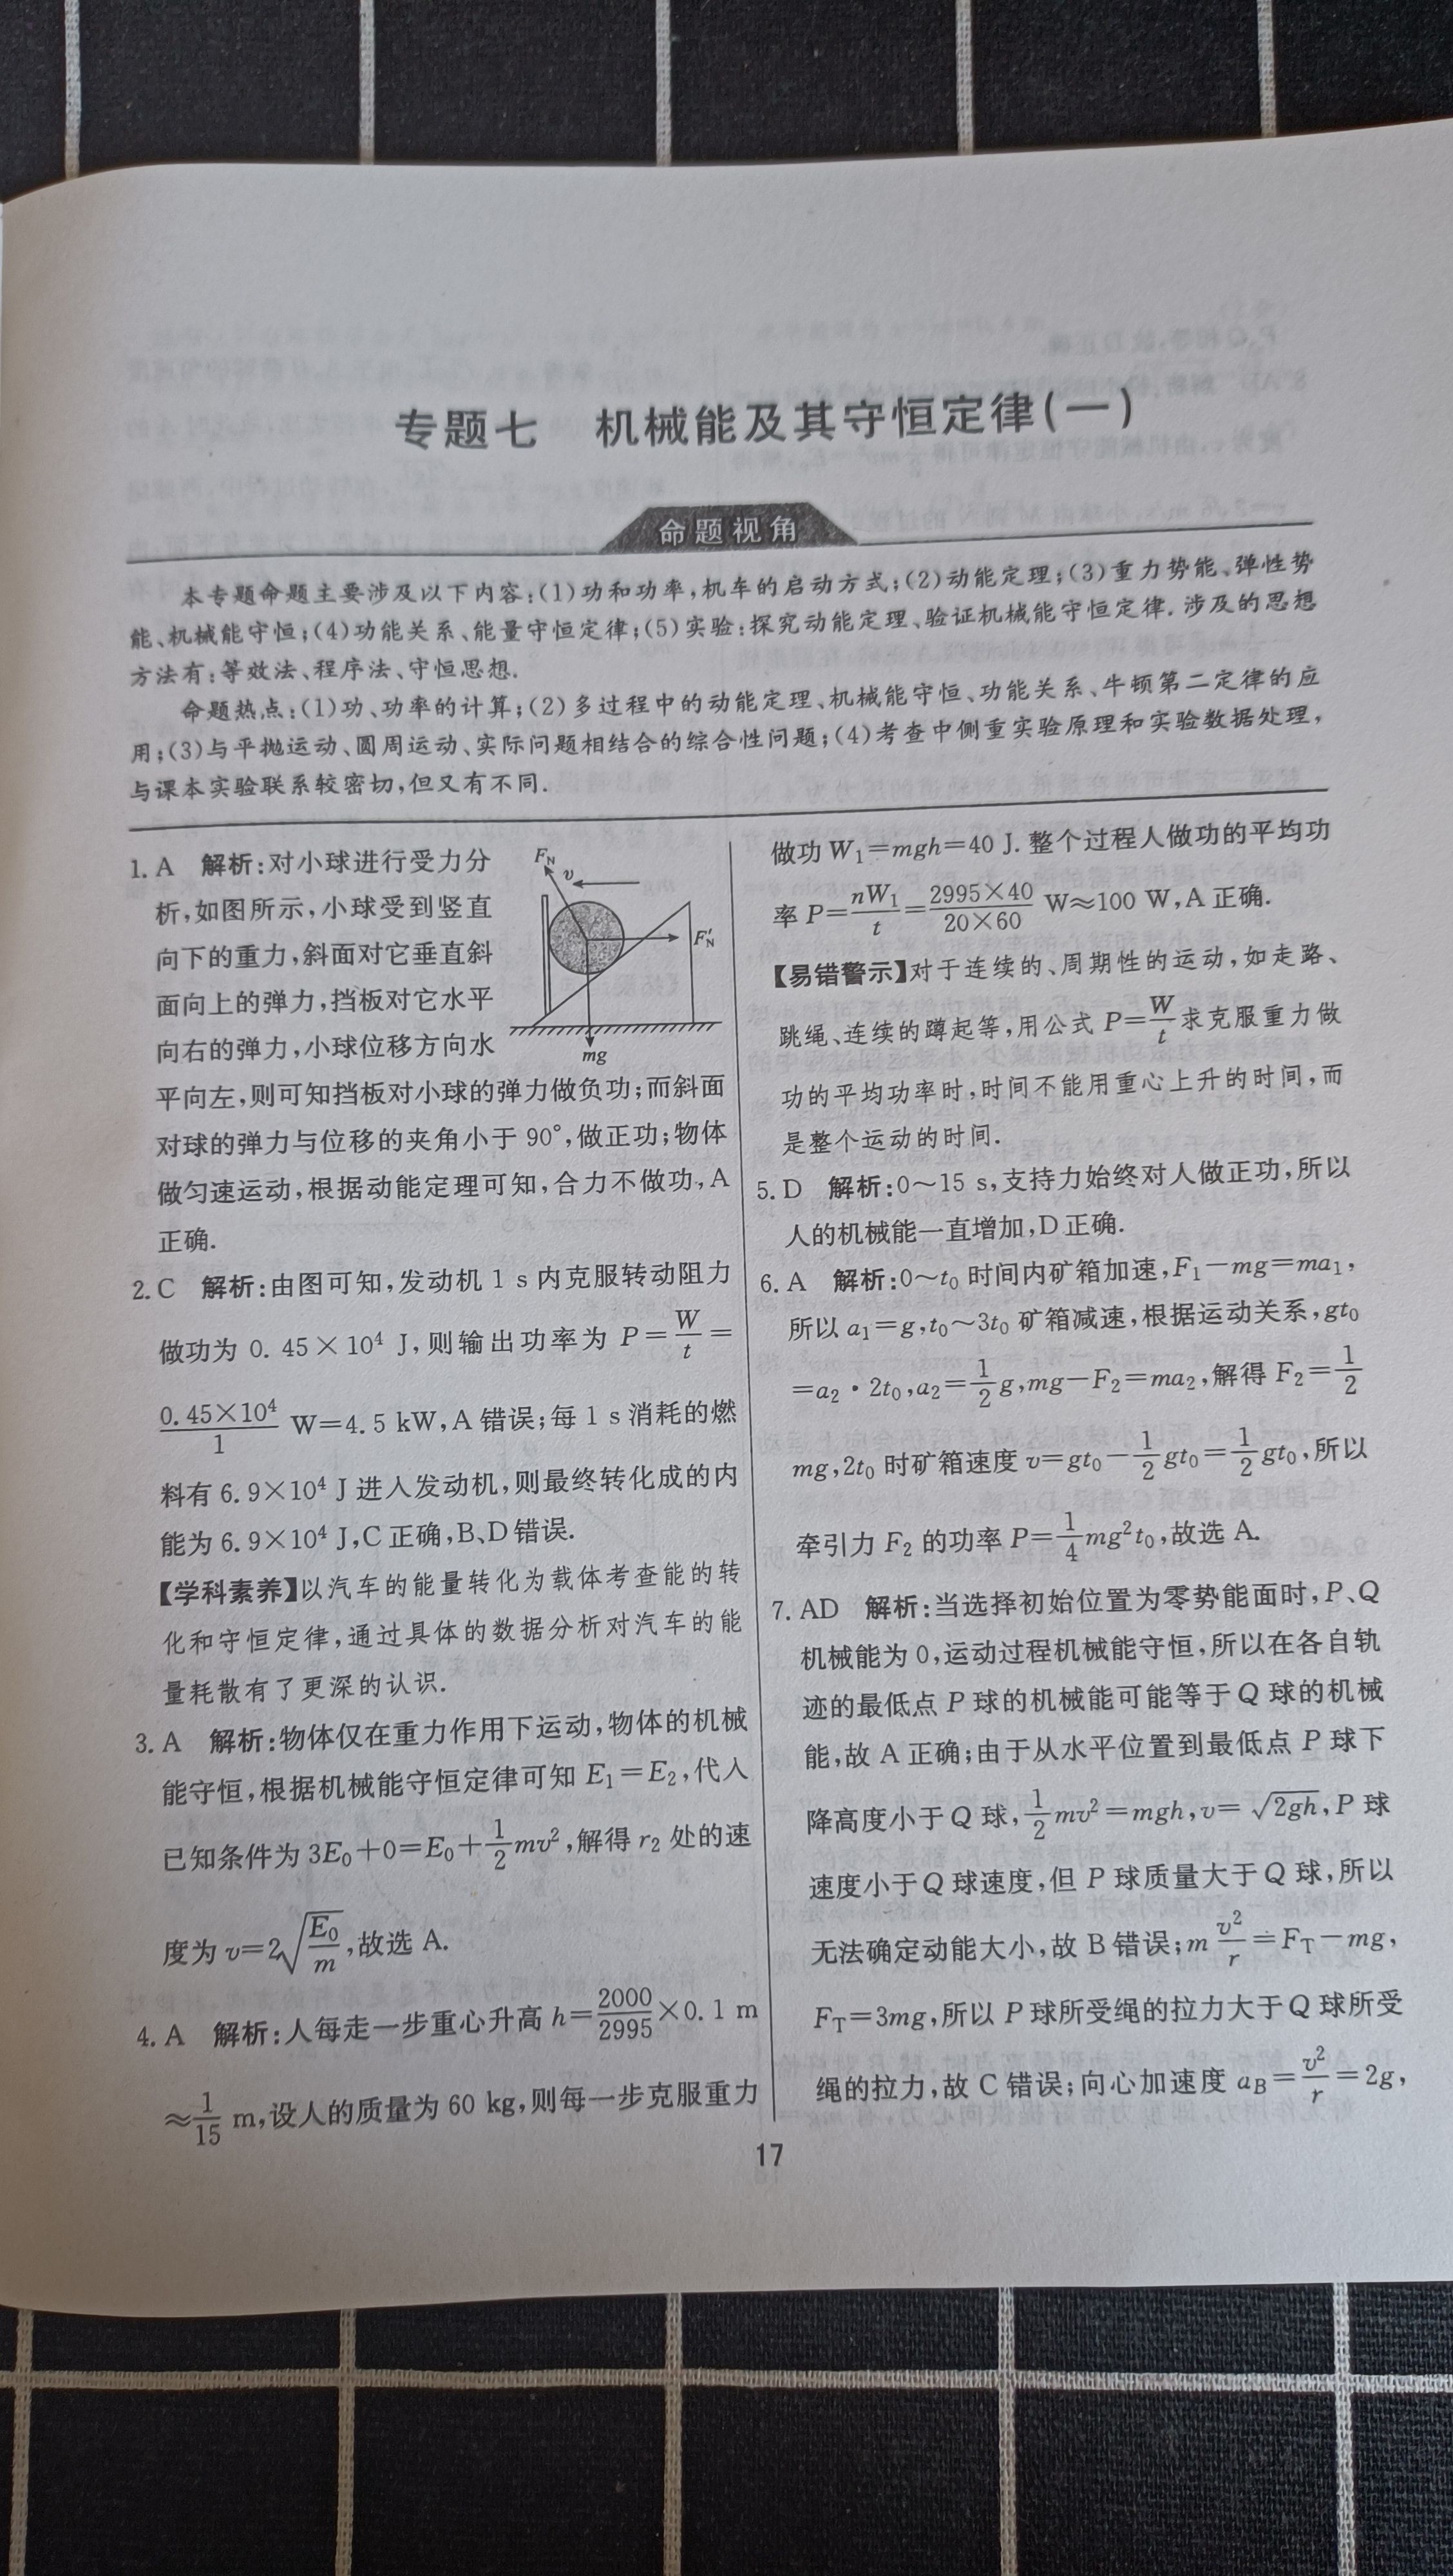 专题七 机械能及其守恒定律(一)
命题视角
本专题命题主要涉及以下内容:(1)功和功率,机车的启动方式;(2)动能定理;(3)重力势能、弹性势
能、机械能守恒;(4)功能关系、能量守恒定律;(5)实验:探究动能定理、验证机械能守恒定律.涉及的思想
方法有:等效法、程序法、守恒思想.
命题热点:(1)功、功率的计算;(2)多过程中的动能定理、机械能守恒、功能关系、牛顿第二定律的应
用;(3)与平抛运动、圆周运动、实际问题相结合的综合性问题;(4)考查中侧重实验原理和实验数据处理,
与课本实验联系较密切,但又有不同.
1. A 解析:对小球进行受力分
析,如图所示,小球受到竖直
向下的重力,斜面对它垂直斜
面向上的弹力,挡板对它水平
向右的弹力,小球位移方向水
F_N
v
F'_N
mg
平向左,则可知挡板对小球的弹力做负功;而斜面
对球的弹力与位移的夹角小于 90°,做正功;物体
做匀速运动,根据动能定理可知,合力不做功,A
正确.
2. C 解析:由图可知,发动机 1 s 内克服转动阻力
做功为 0.45×10⁴ J,则输出功率为 P=W/t=
0.45×10⁴/1 W=4.5 kW,A 错误;每 1 s 消耗的燃
料有 6.9×10⁴ J 进入发动机,则最终转化成的内
能为 6.9×10⁴ J,C 正确,B、D 错误.
【学科素养】以汽车的能量转化为载体考查能的转
化和守恒定律,通过具体的数据分析对汽车的能
量耗散有了更深的认识.
3. A 解析:物体仅在重力作用下运动,物体的机械
能守恒,根据机械能守恒定律可知 E₁=E₂,代入
已知条件为 3E₀+0=E₀+1/2 mv²,解得 r₂ 处的速
度为 v=2√(E₀/m),故选 A.
4. A 解析:人每走一步重心升高 h=2000/2995×0.1 m
≈1/15 m,设人的质量为 60 kg,则每一步克服重力
做功 W₁=mgh=40 J. 整个过程人做功的平均功
率 P=nW₁/t=2995×40/20×60 W≈100 W,A 正确.
【易错警示】对于连续的、周期性的运动,如走路、
跳绳、连续的蹲起等,用公式 P=W/t求克服重力做
功的平均功率时,时间不能用重心上升的时间,而
是整个运动的时间.
5. D 解析:0～15 s,支持力始终对人做正功,所以
人的机械能一直增加,D 正确.
6. A 解析:0～t₀ 时间内矿箱加速,F₁-mg=ma₁,
所以 a₁=g,t₀～3t₀ 矿箱减速,根据运动关系,gt₀
=a₂·2t₀,a₂=1/2 g,mg-F₂=ma₂,解得 F₂=1/2
mg,2t₀ 时矿箱速度 v=gt₀-1/2 gt₀=1/2 gt₀,所以
牵引力 F₂ 的功率 P=1/4 mg²t₀,故选 A.
7. AD 解析:当选择初始位置为零势能面时,P、Q
机械能为 0,运动过程机械能守恒,所以在各自轨
迹的最低点 P 球的机械能可能等于 Q 球的机械
能,故 A 正确;由于从水平位置到最低点 P 球下
降高度小于 Q 球,1/2 mv²=mgh,v=√(2gh),P 球
速度小于 Q 球速度,但 P 球质量大于 Q 球,所以
无法确定动能大小,故 B 错误;m v²/r=F_T-mg,
F_T=3mg,所以 P 球所受绳的拉力大于 Q 球所受
绳的拉力,故 C 错误;向心加速度 a_B=v²/r=2g,
17